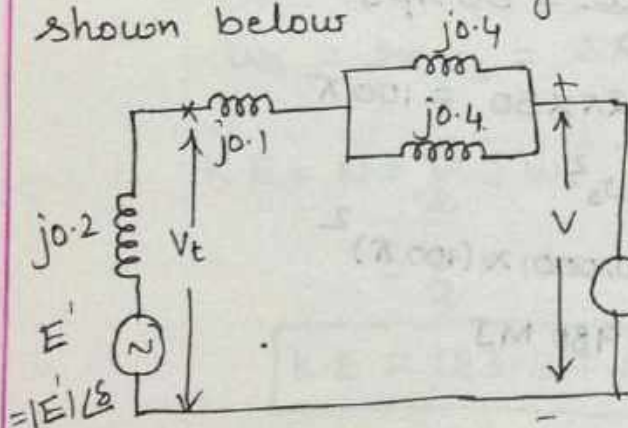 shown below
j0.4
j0.1
j0.4
+
j0.2
Vt
V
E'
~
=|E'|∠δ
-